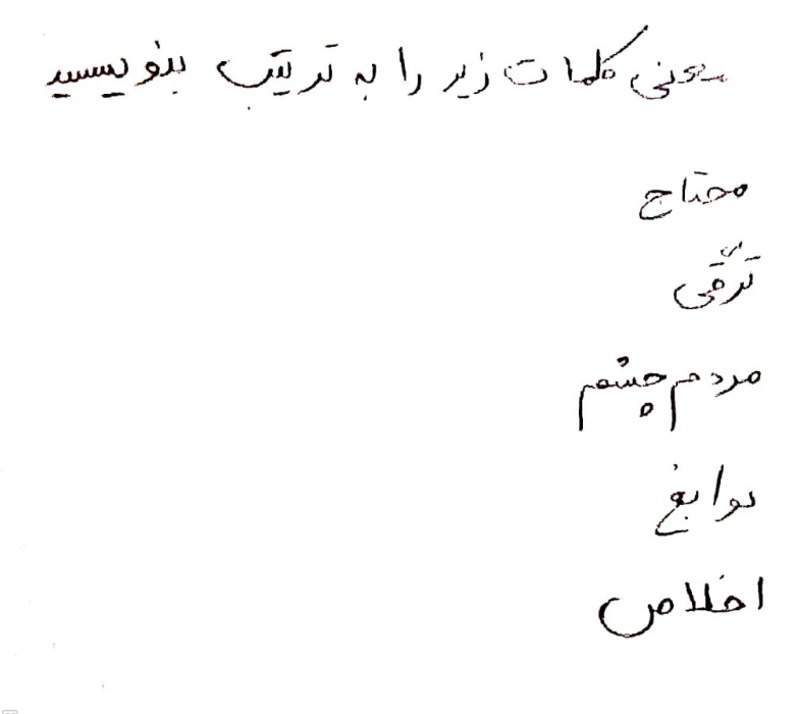 معنی کلمات زیر را به ترتیب بنویسید
محتاج
ترقّی
مردم چشم
نوابغ
اخلاص